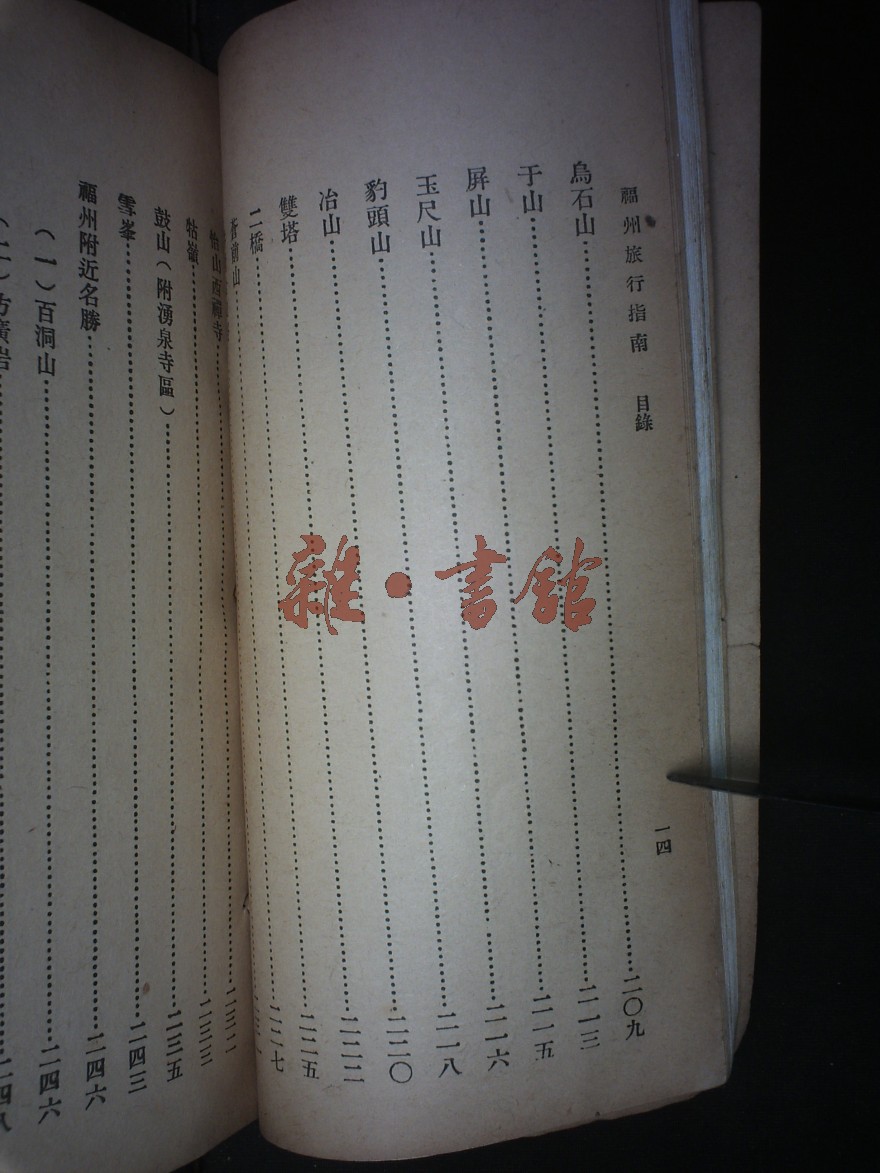 福州旅行指南 目錄 一四
烏石山……二〇九
于山……二一三
屏山……二一五
玉尺山……二一六
豹頭山……二一八
冶山……二二〇
雙塔……二二二
二橋……二二五
蒼前山……二二七
怡山西禪寺……二三二
牯嶺……二三三
鼓山（附湧泉寺區）……二三五
雪峯……二四三
福州附近名勝……二四六
（一）百洞山……二四六
（二）方廣岩……二四八
雜·書館